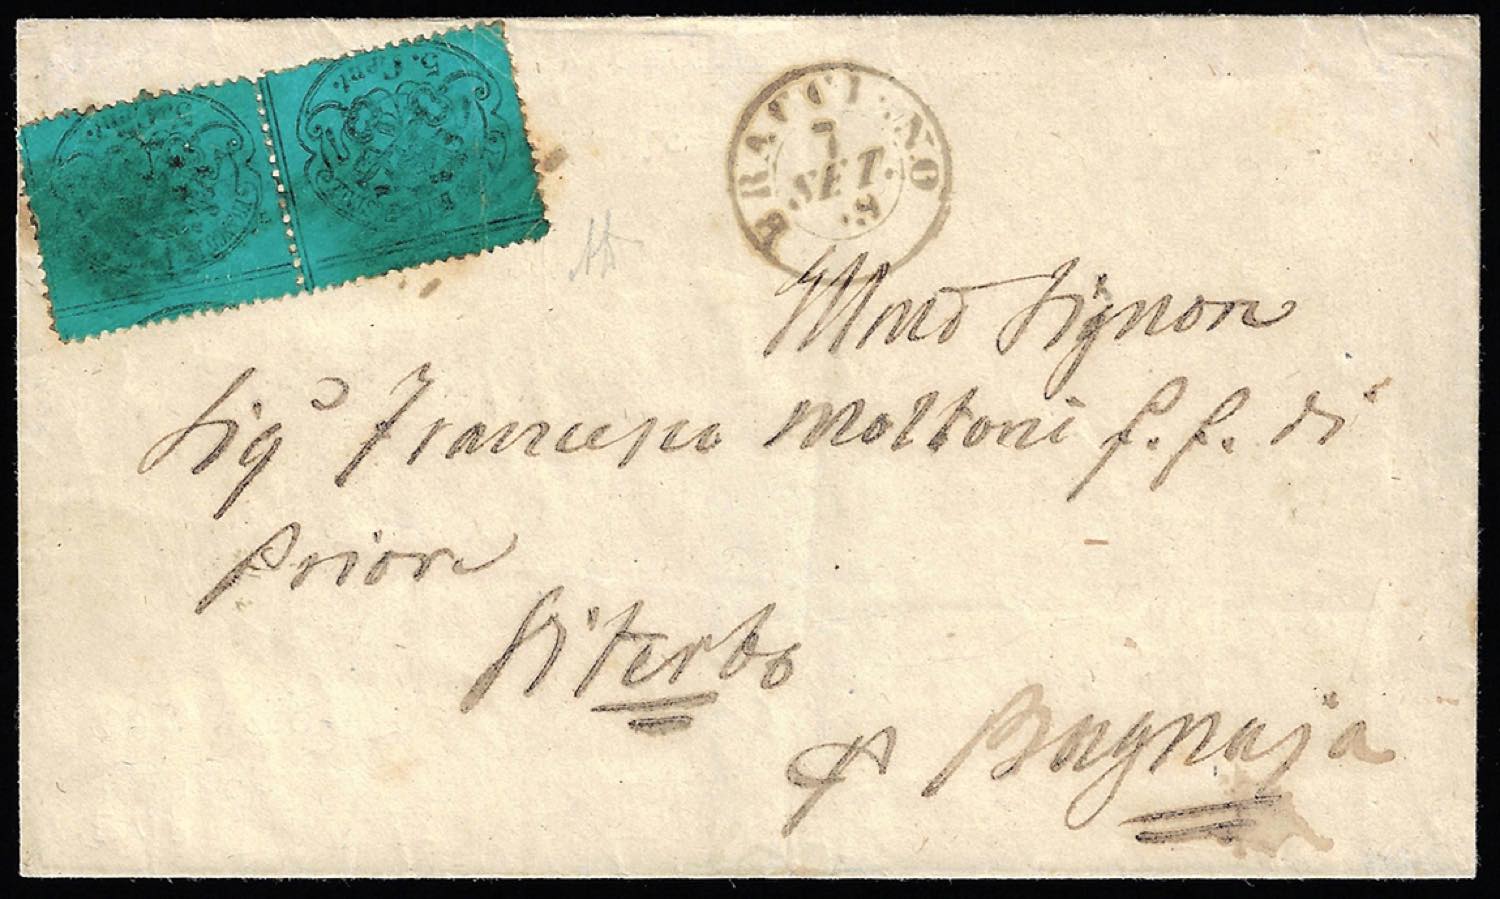 5. Cent.
5. Cent.
BRACCIANO
7
SET.
Illmo Signor
Sigr Francesco Moltoni f. f. di
Priore
Viterbo
p Bagnaja